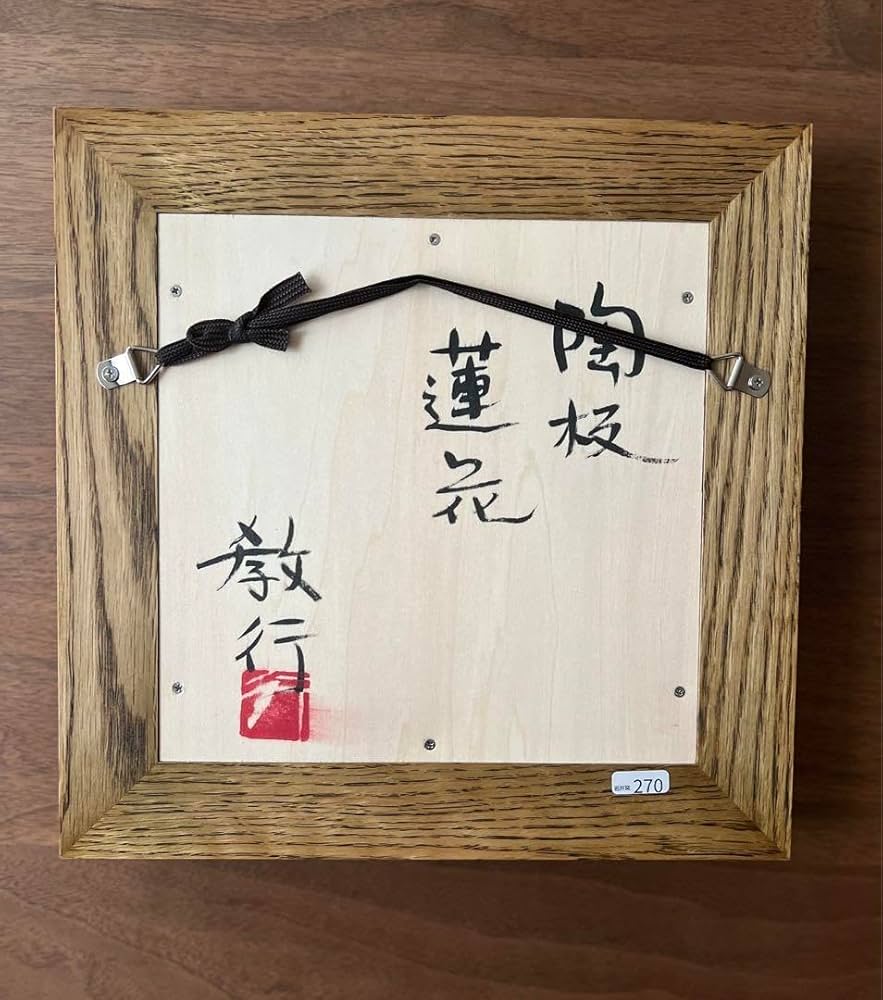 陶板
蓮花
教行
270